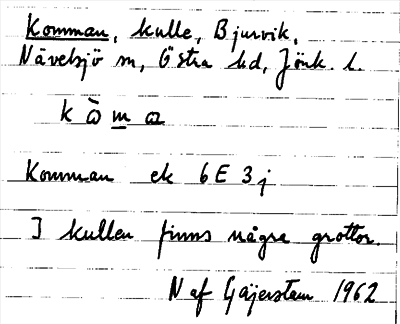 Komman, kulle, Bjurvik,
Nävelsjö sn, Östra hd, Jönk. l.
k ò m a
Komman ek 6E 3j
I kullen finns några grottor.
N af Geijerstam 1962